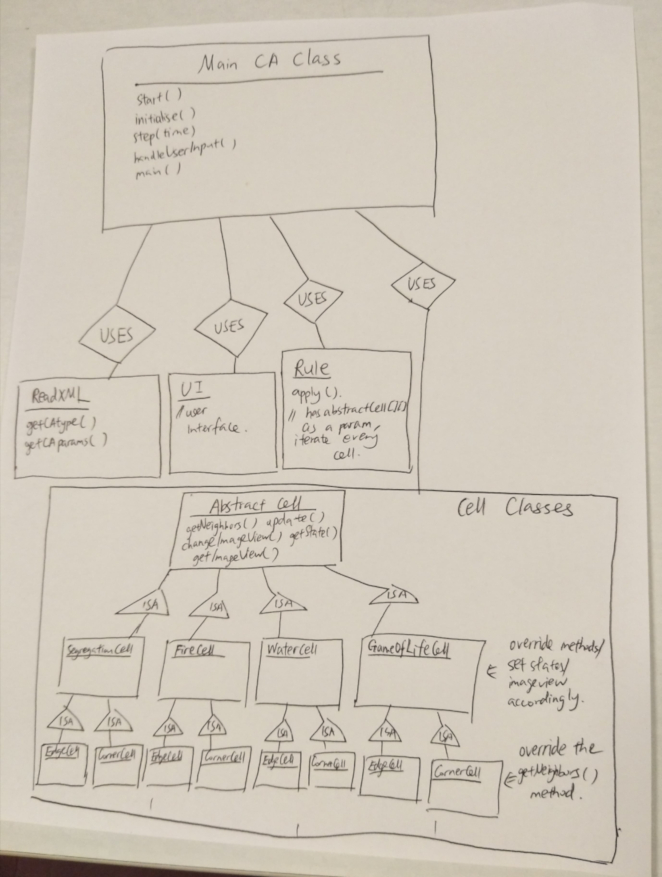 Main CA Class
start( )
initialise( )
step(time)
handleUserInput( )
main( )
USES
USES
USES
USES
ReadXML
getCAtype( )
getCAparams( )
UI
// user
interface.
Rule
apply( ).
// has abstractCell[][]
as a param,
iterate every
cell.
Cell Classes
Abstract Cell
getNeighbors( ) update( )
changeImageView( ) getState( )
getImageView( )
ISA
ISA
ISA
ISA
SegregationCell
FireCell
WaterCell
GameOfLifeCell
override methods/
set states/
imageview
accordingly.
ISA
ISA
ISA
ISA
ISA
ISA
ISA
ISA
EdgeCell
CornerCell
EdgeCell
CornerCell
EdgeCell
CornerCell
EdgeCell
CornerCell
override the
getNeighbors( )
method.